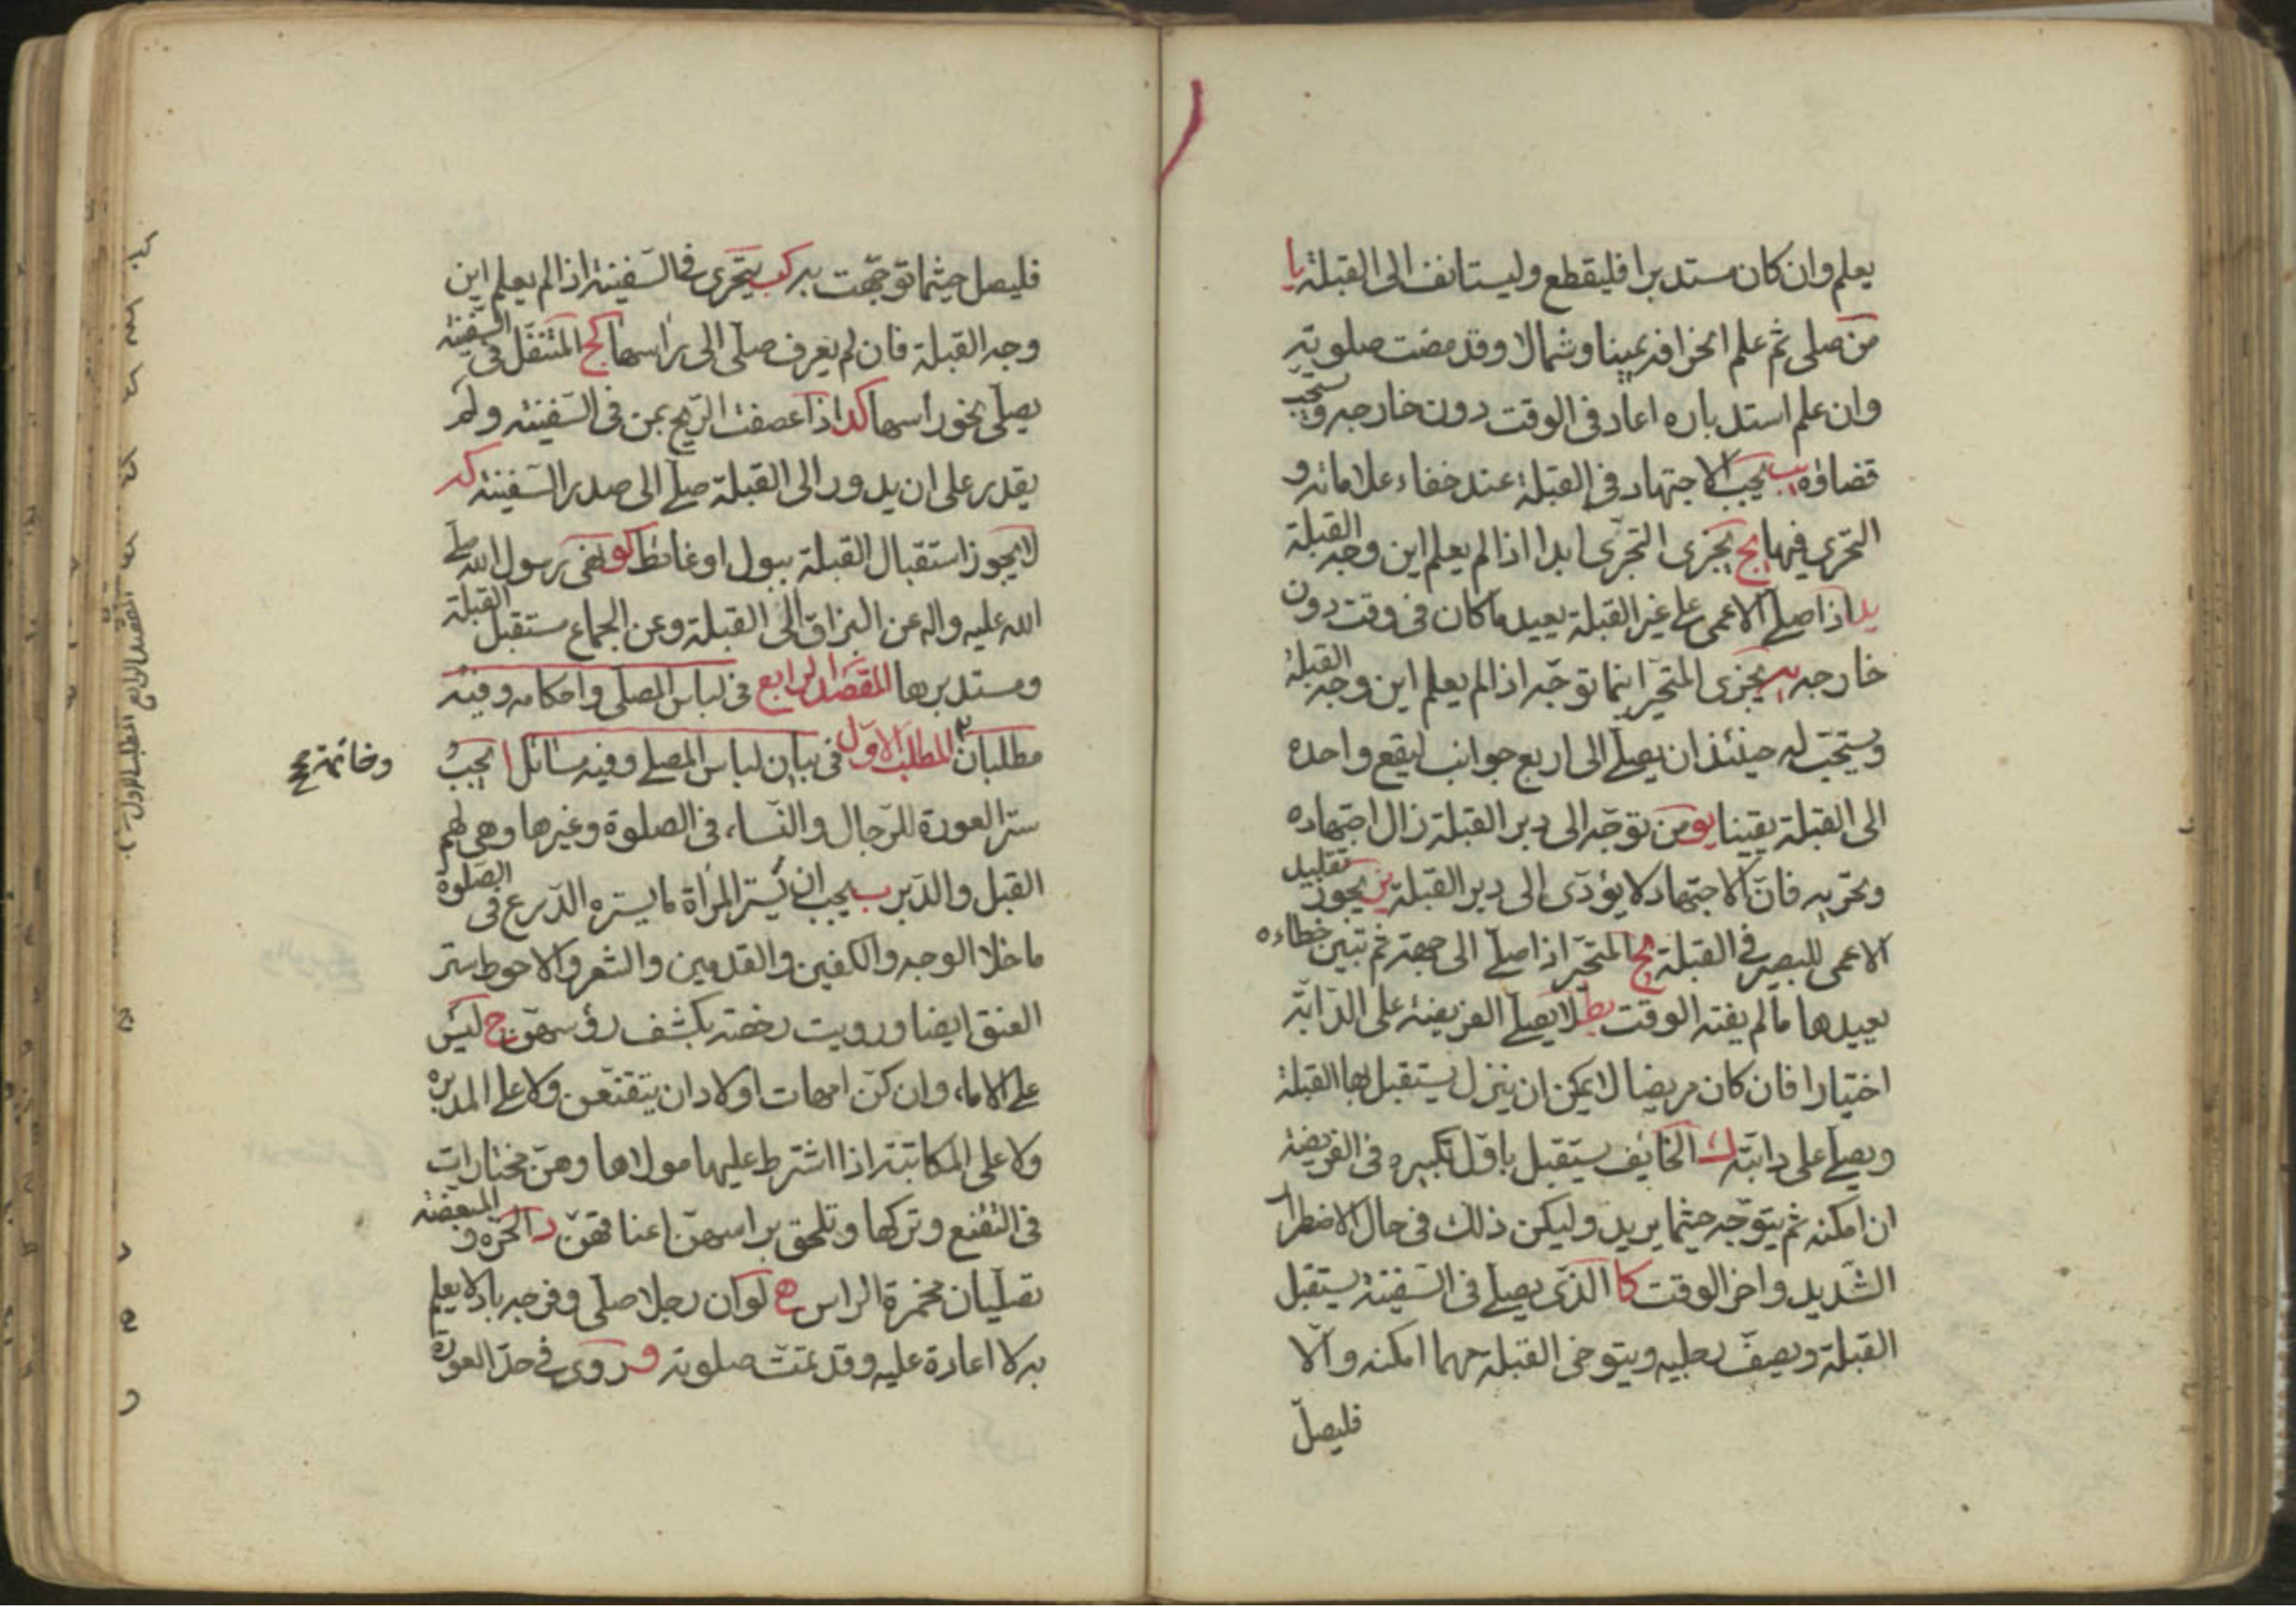 يعلم وان كان مستدبرا فليقطع وليستانف الى القبلة يا
من صلى ثم علم انحرافه يمينا وشمالا وقد مضت صلوته
وان علم استدباره اعاد فى الوقت دون خارجه ويستحب
قضاؤه يب يجب الاجتهاد فى القبلة عند خفاء علاماته و
التحرى فيها يج يجزى التحرى ابدا اذا لم يعلم اين وجه القبلة
يد اذا صلى الاعمى على غير القبلة يعيد ما كان فى وقت دون
خارجه يه يجزى المتحير اينما توجه اذا لم يعلم اين وجه القبلة
ويستحب له حينئذ ان يصلى الى اربع جوانب ليقع واحده
الى القبلة يقينا يو من توجه الى دبر القبلة زال اجتهاده
وتحريه فان الاجتهاد لا يؤدى الى دبر القبلة يز يجوز تقليد
الاعمى للبصير فى القبلة يح المتحير اذا صلى الى جهة ثم تبين خطاءه
يعيدها ما لم يفته الوقت يط لا يصلى الفريضة على الدابة
اختيارا فان كان مريضا لا يمكن ان ينزل يستقبل بها القبلة
ويصلى على دابته ك الخايف يستقبل باول تكبيره فى الفريضة
ان امكنه ثم يتوجه حيثما يريد وليكن ذلك فى حال الاضطرار
الشديد واخر الوقت كا الذى يصلى فى السفينة يستقبل
القبلة ويصف رجليه ويتوخى القبلة مهما امكنه والا
فليصل
فليصل حيثما توجهت به كب يتحرى فى السفينة اذا لم يعلم اين
وجه القبلة فان لم يعرف صلى الى راسها كج المتنفل فى السفينة
يصلى نحو راسها كد اذا عصفت الريح بمن فى السفينه ولم
يقدر على ان يدور الى القبلة صلى الى صدر السفينه كه
لا يجوز استقبال القبلة ببول او غائط كو نهى رسول الله صلى
الله عليه واله عن البزاق الى القبلة وعن الجماع مستقبل القبلة
ومستدبرها المقصد الرابع فى لباس المصلى واحكامه وفيه
مطلبان المطلب الاول فى بيان لباس المصلى وفيه مسائل ا يجب
وخاتمة صح
ستر العورة للرجال والنساء فى الصلوة وغيرها وهى لهم
القبل والدبر ب يجب ان تستر المراة ما يستره الدرع فى الصلوة
ما خلا الوجه والكفين والقدمين والشعر والاحوط ستر
العنق ايضا ورويت رخصة بكشف رؤسهن ج ليس
على الاماء وان كن امهات اولاد ان يتقنعن ولا على المدبره
ولا على المكاتبة اذا اشترط عليها مولاها وهن مختارات
فى التقنع وتركها وتلحق براسهن اعناقهن د الحره و المبعضة
تصليان مخمرة الراس ه لو ان رجلا صلى وفرجه باد لا يعلم
به لا اعادة عليه وقد تمت صلوته و روى فى حد العورة
المقصد الرابع المطلب الاول